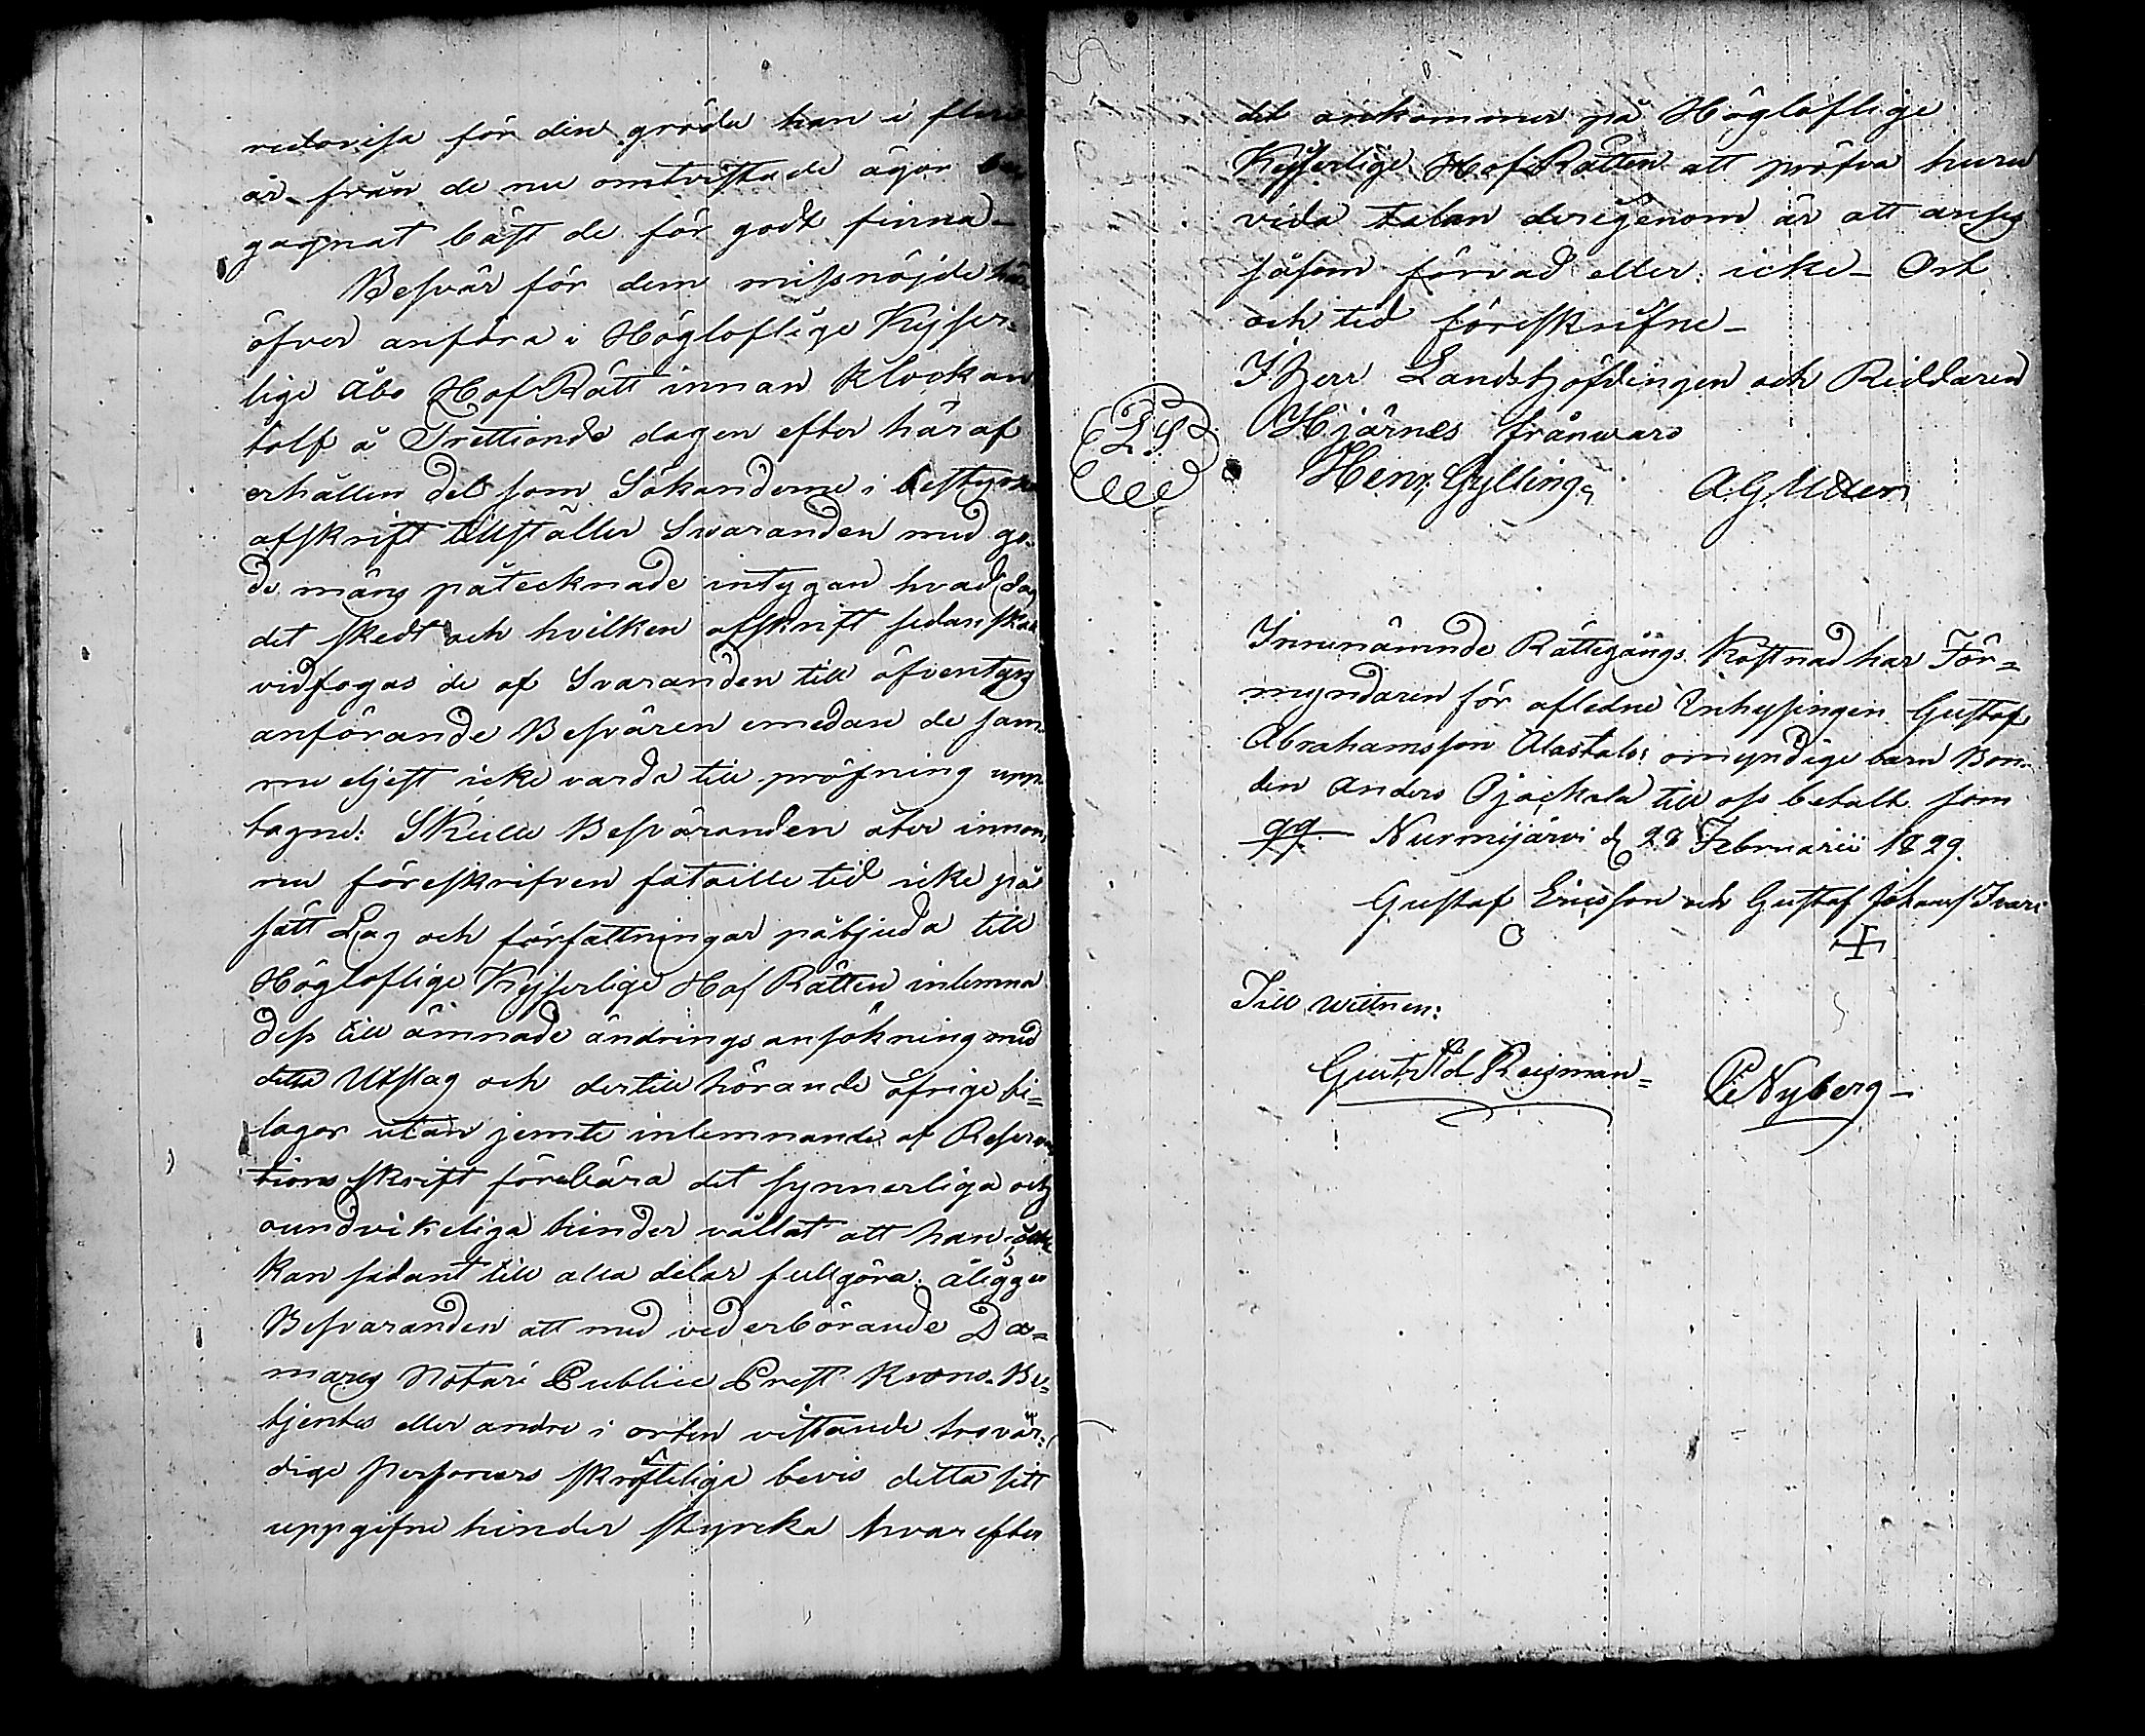 redovisa för den gröda han i flere
år från de nu omtvistade ägor be
gagnat bäst de för godt finna_
Besvär för dem missnöjde här
öfver anföra i Högloflige Kejser-
lige Åbo HofRätt innan klockan
tolf å Trettionde dagen efter häraf
erhållen del som Sökanderne i bestyrckt
afskrift tillställer Svaranden med go-
de mäns påtecknade intygan hvad dag
det skedt och hvilken afskrift sedan skall
vidfogas de af Svaranden till äfventyrs
anförande Besvären emedan de sam-
me eljest icke varda till pröfning upp-
tagne: Skulle Besväranden åter innom
nu föreskrifven fataille tid icke på
sätt Lag och författningar påbjuda till
Högloflige Kejserlige Hof Rätten inlemna
dess till ämnade ändrings ansökning med
detta Utslag och dertill hörande öfrige bi=
lagor utan jemte inlemnande af Reserva
tions skrift förebära det synnerliga och
oundvikeliga hinder vållat att han icke
kan sådant till alla delar fullgöra, ålägges
Besvaranden att med vederbörande Do=
mares Notarii Publicii Prest Krono-Be=
tjentes eller andre i orten vistande trovär-
dige Personers skrifteliga bevis detta sitt
uppgifne hinder styrcka hvarefter
det ankommer på Högloflige
Kejserlige HofRätten att pröfva huru
vida talan derigenom är att anses
såsom förvad eller icke_ Ort
och tid föreskrifne_
I Herr Landshöfdingen och Riddaren
Hjärnes frånvaro
LS
Henr. Gylling
A G Udden
Innenämnde Rättegångs Kostnad har För=
myndaren för afledne Inhysingen Gustaf
Abrahamsson Alastalos omyndige barn Bon-
den Anders Ojackala till oss betalt som
qq. Nurmijärvi d 28 Februarii 1829.
Gustaf Ericsson och Gustaf Johanss Ivari
Till Wittnen:
Reigman=
Nyberg_